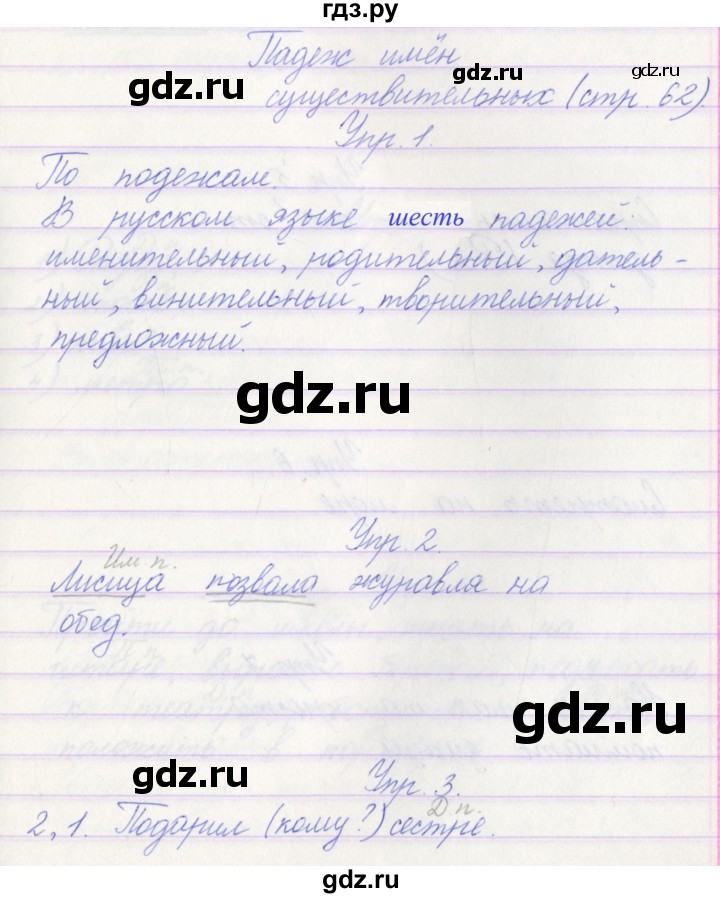 гдз.ру
Падеж имён
существительных (стр. 62).
gdz.ru gdz.ru gdz.ru
Упр. 1.
По подежам.
В русском языке шесть падежей.
именительный, родительный, датель-
ный, винительный, творительный,
предложный.
gdz.ru
Упр. 2.
Им п.
Лисица позвала журавля на
обед.
gdz.ru
gdz.ru
Упр. 3.
Д п.
2, 1. Подарил (кому?) сестре.
gdz.ru